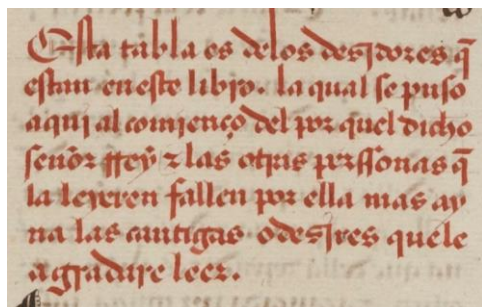 Esta tabla es delos desidores q̃
estan eneste libro. la qual se puso
aqui al comienço del por quel dicho
señor rrey τ las otras perssonas q̃
la leyeren fallen por ella mas ay
na las cantigas o desires quele
agradare leer.